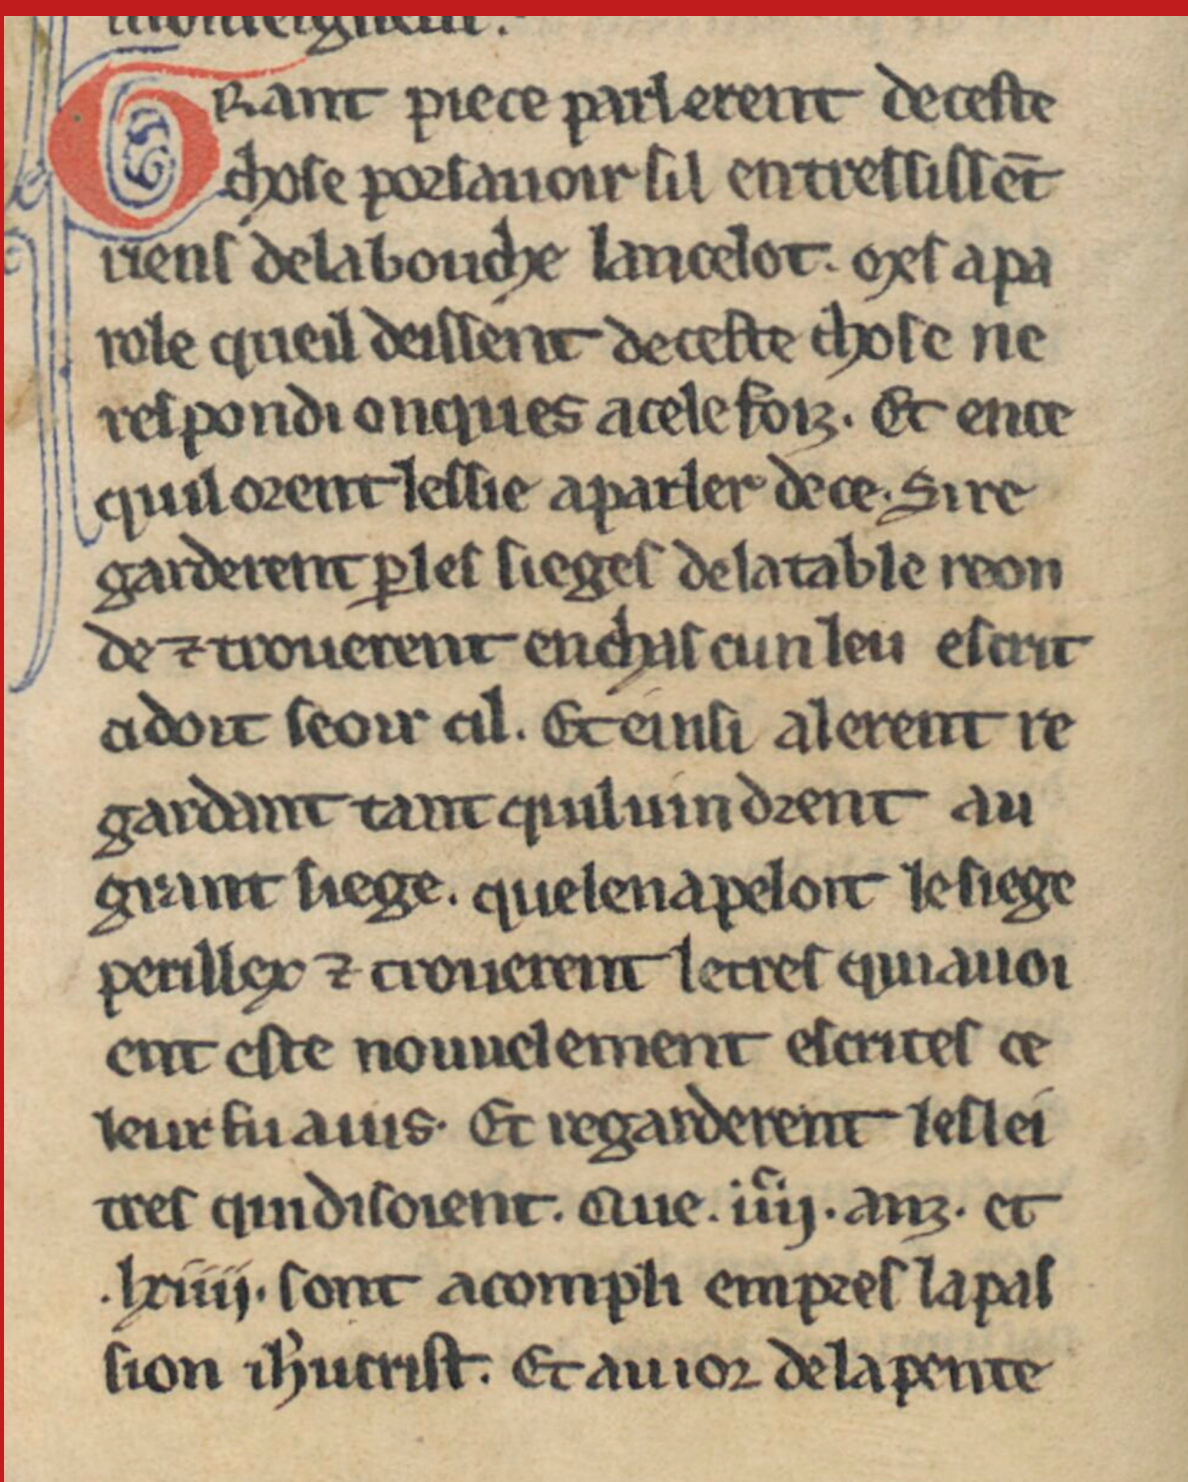 GRant piece parlerent deceste
chose porsauoir sil entresissēt
riens delabouche lancelot. Mes apa
role queil deissent deceste chose ne
respondi onques acele foiz. Et ence
quil orent lessie aparler dece. Si re
garderent ꝑles sieges delatable reon
de ⁊ trouerent enchascun leu escrit
ci doit seoir cil. Et einsi alerent re
gardant tant quiluindrent au
grant siege. quelenapeloit le siege
perillex ⁊ trouerent letres qui auoi
ent este nouuelement escrites ce
leur fu auis. Et regarderent les lei
tres qui disoient. Que .iiijͨ. anz. et
.lxiiij. sont acompli empres lapas
sion ih̓ucrist. Et auior delapente